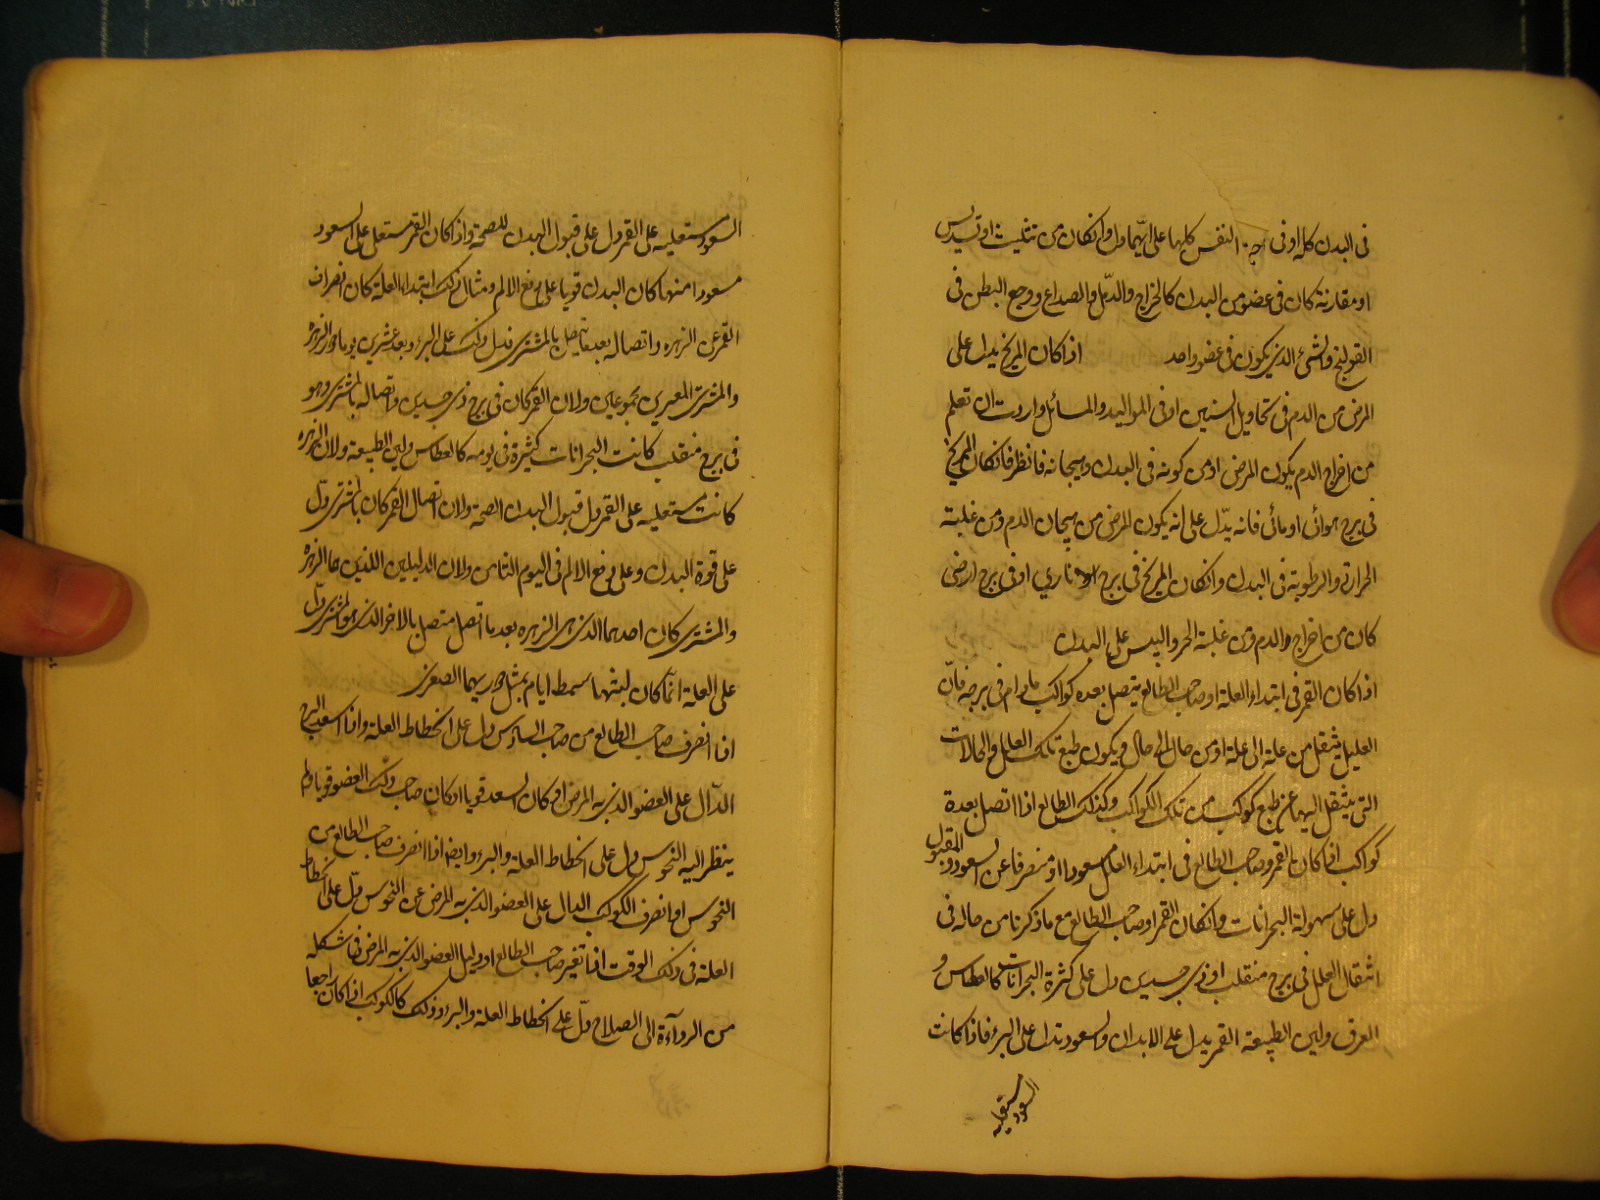 فى البدن كله او فى اجزاء النفس كلها على ايهما دل وان كان من تثليث او تسديس
او مقارنة كان فى عضو من البدن كالخراج والدمل والصداع ووجع البطن فى
القولنج والشئ الذى يكون فى عضو واحد اذا كان المريخ يدل على
المرض من الدم فى تحاويل السنين او فى المواليد والمسائل واردت ان تعلم
من اخراج الدم يكون المرض او من كونه فى البدن وهيجانه فانظر فان كان المريخ
فى برج هوائى او مائى فانه يدل على انه يكون المرض من هيجان الدم ومن غلبة
الحرارة والرطوبة فى البدن وان كان المريخ فى برج نارى او فى برج ارضى
كان من اخراج الدم ومن غلبة الحر واليبس على البدن
اذا كان القمر فى ابتداء العلة او صاحب الطالع يتصل بعدة كواكب ما دام فى برجه فان
العليل ينتقل من علة الى علة او من حال الى حال ويكون طبع تلك العلل والحالات
التى ينتقل اليها من طبع كوكب من تلك الكواكب وكذلك الطالع اذا اتصل بعدة
كواكب اذا كان القمر وصاحب الطالع فى ابتداء العلل مسعودا او منصرفا عن السعود والمقبول
دل على سهولة البحرانات وان كان القمر او صاحب الطالع مع ما ذكرنا من حاله فى
انتقال العلل فى برج منقلب او ذى جسدين دل على كثرة البحرانات كالعطاس و
العرق ولين الطبيعة القمر يدل على الابدان والسعود تدل على البرء فاذا كانت
السعود مستعليه
السعود مستعليه على القمر دل على قبول البدن للصحة واذا كان القمر مستعل على السعود
مسعودا منها كان البدن قويا على دفع الالم ومثال ذلك ابتداء العلة كان انصراف
القمر عن الزهره واتصاله بعد ما يتصل بالمشترى فدل ذلك على البرء وبعد عشرين يوما دور الزهره
والمشترى الصغريين مجموعين ولان القمر كان فى برج ذى جسدين واتصاله بالمشترى وهو
فى برج منقلب كانت البحرانات كثيرة فى يومه كالعطاس ولين الطبيعة ولان الزهره
كانت مستعليه على القمر دل قبول البدن الصحة ولان اتصال القمر كان بالمشترى دل
على قوة البدن وعلى دفع الالم فى اليوم الثامن ولان الدليلين اللذين هما الزهره
والمشترى كان احدهما الذى هى الزهره بعد ما اتصل متصل بالاخر الذى هو المشترى دل
على العلة انما كان لبثها ايام بمثل دوريهما الصغرى
اذا انصرف صاحب الطالع من صاحب السادس دل على انحطاط العلة واذا اسعد البرج
الدال على العضو الذى به المرض اذ كان السعد قويا او كان صاحب ذلك العضو قويا ولم
ينظر اليه النحوس دل على انحطاط العلة والبرء وايضا اذا انصرف صاحب الطالع من
النحوس او انصرف الكوكب الدال على العضو الذى به المرض عن النحوس دل على انحطاط
العلة فى ذلك الوقت اذا تغير صاحب الطالع او دليل العضو الذى به المرض فى شكله
من الرداءة الى الصلاح دل على انحطاط العلة والبرء وذلك كالكوكب اذا كان راجعا